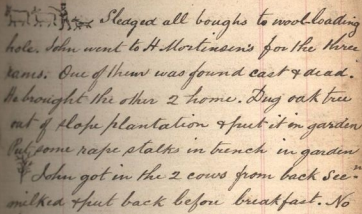 Sledged all boughs to wool loading
hole. John went to H Mortensen's for the three
rams. One of them was found cast & dead.
He brought the other 2 home. Dug oak tree
out of slope plantation & put it in garden
Put some rape stalks in trench in garden
John got in the 2 cows from back See-
milked & put back before breakfast. No